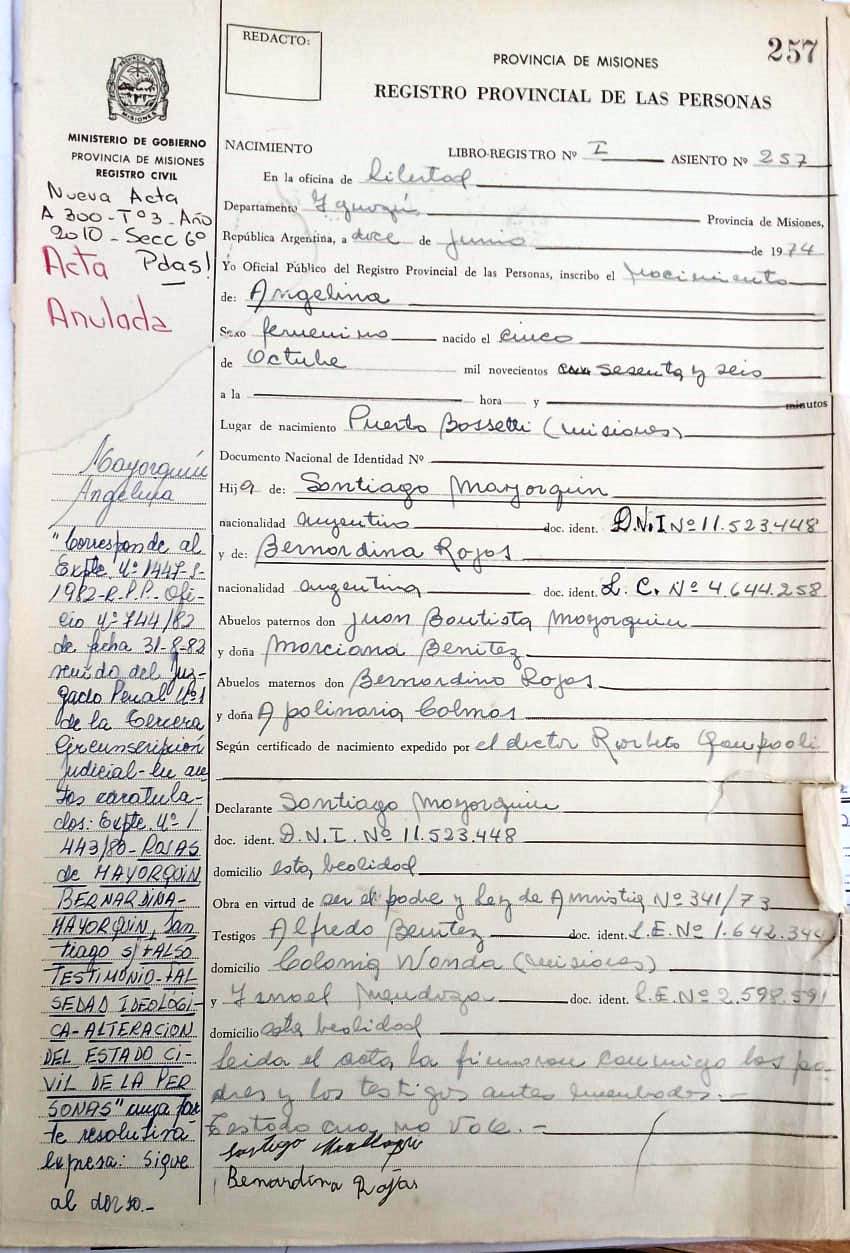 257
REDACTO:
PROVINCIA DE MISIONES
REGISTRO PROVINCIAL DE LAS PERSONAS
MISIONES
MINISTERIO DE GOBIERNO
PROVINCIA DE MISIONES
REGISTRO CIVIL
Nueva Acta
A 300 - Tº 3 - Año
2010 - Secc 6º
Pdas!
Acta
Anulada
NACIMIENTO LIBRO-REGISTRO Nº I ASIENTO Nº 257
En la oficina de Libertad
Departamento Iguazú Provincia de Misiones,
República Argentina, a doce de junio de 1974
Yo Oficial Público del Registro Provincial de las Personas, inscribo el nacimiento
de: Angelina
Sexo femenino nacido el cinco
de Octubre mil novecientos sesenta y seis
a la hora y minutos
Lugar de nacimiento Puerto Bossetti (Misiones)
Documento Nacional de Identidad Nº
Hija de: Santiago Mayorquin
nacionalidad argentino doc. ident. D.N.I Nº 11.523.448
y de: Bernardina Rojas
nacionalidad argentina doc. ident. L. C. Nº 4.644.258
Abuelos paternos don Juan Bautista Mayorquin
y doña Marciana Benitez
Abuelos maternos don Bernardino Rojas
y doña Apolinaria Colmas
Según certificado de nacimiento expedido por el doctor
Declarante Santiago Mayorquin
doc. ident. D.N.I. Nº 11.523.448
domicilio esta localidad
Obra en virtud de ser el padre y Ley de Amnistia Nº 341/73
Testigos Alfredo Benitez doc. ident. L.E. Nº 1.642.344
domicilio Colonia Wanda (Misiones)
y Ismael Mendoza doc. ident. L.E. Nº 2.598.591
domicilio esta localidad
Leida el acta, la firmaron conmigo los pa-
dres y los testigos antes nombrados.-
Testado cua, no Vale.-
Bernardina Rojas
Mayorquín
Angelina
"Corresponde al
Expte. Nº 1447-S-
1982-R.P.P. Ofi-
cio Nº 744/82
de fecha 31-8-82
venido del Juz-
gado Penal Nº 1
de la Tercera
Circunscripción
Judicial-en au-
tos caratula-
dos: Expte. Nº 1
443/80-ROJAS
de MAYORQUIN
BERNARDINA-
MAYORQUIN, San
tiago s/FALSO
TESTIMONIO-FAL
SEDAD IDEOLÓGI-
CA-ALTERACION
DEL ESTADO CI-
VIL DE LA PER
SONAS" cuya par
te resolutiva
expresa: Sigue
al dorso.-